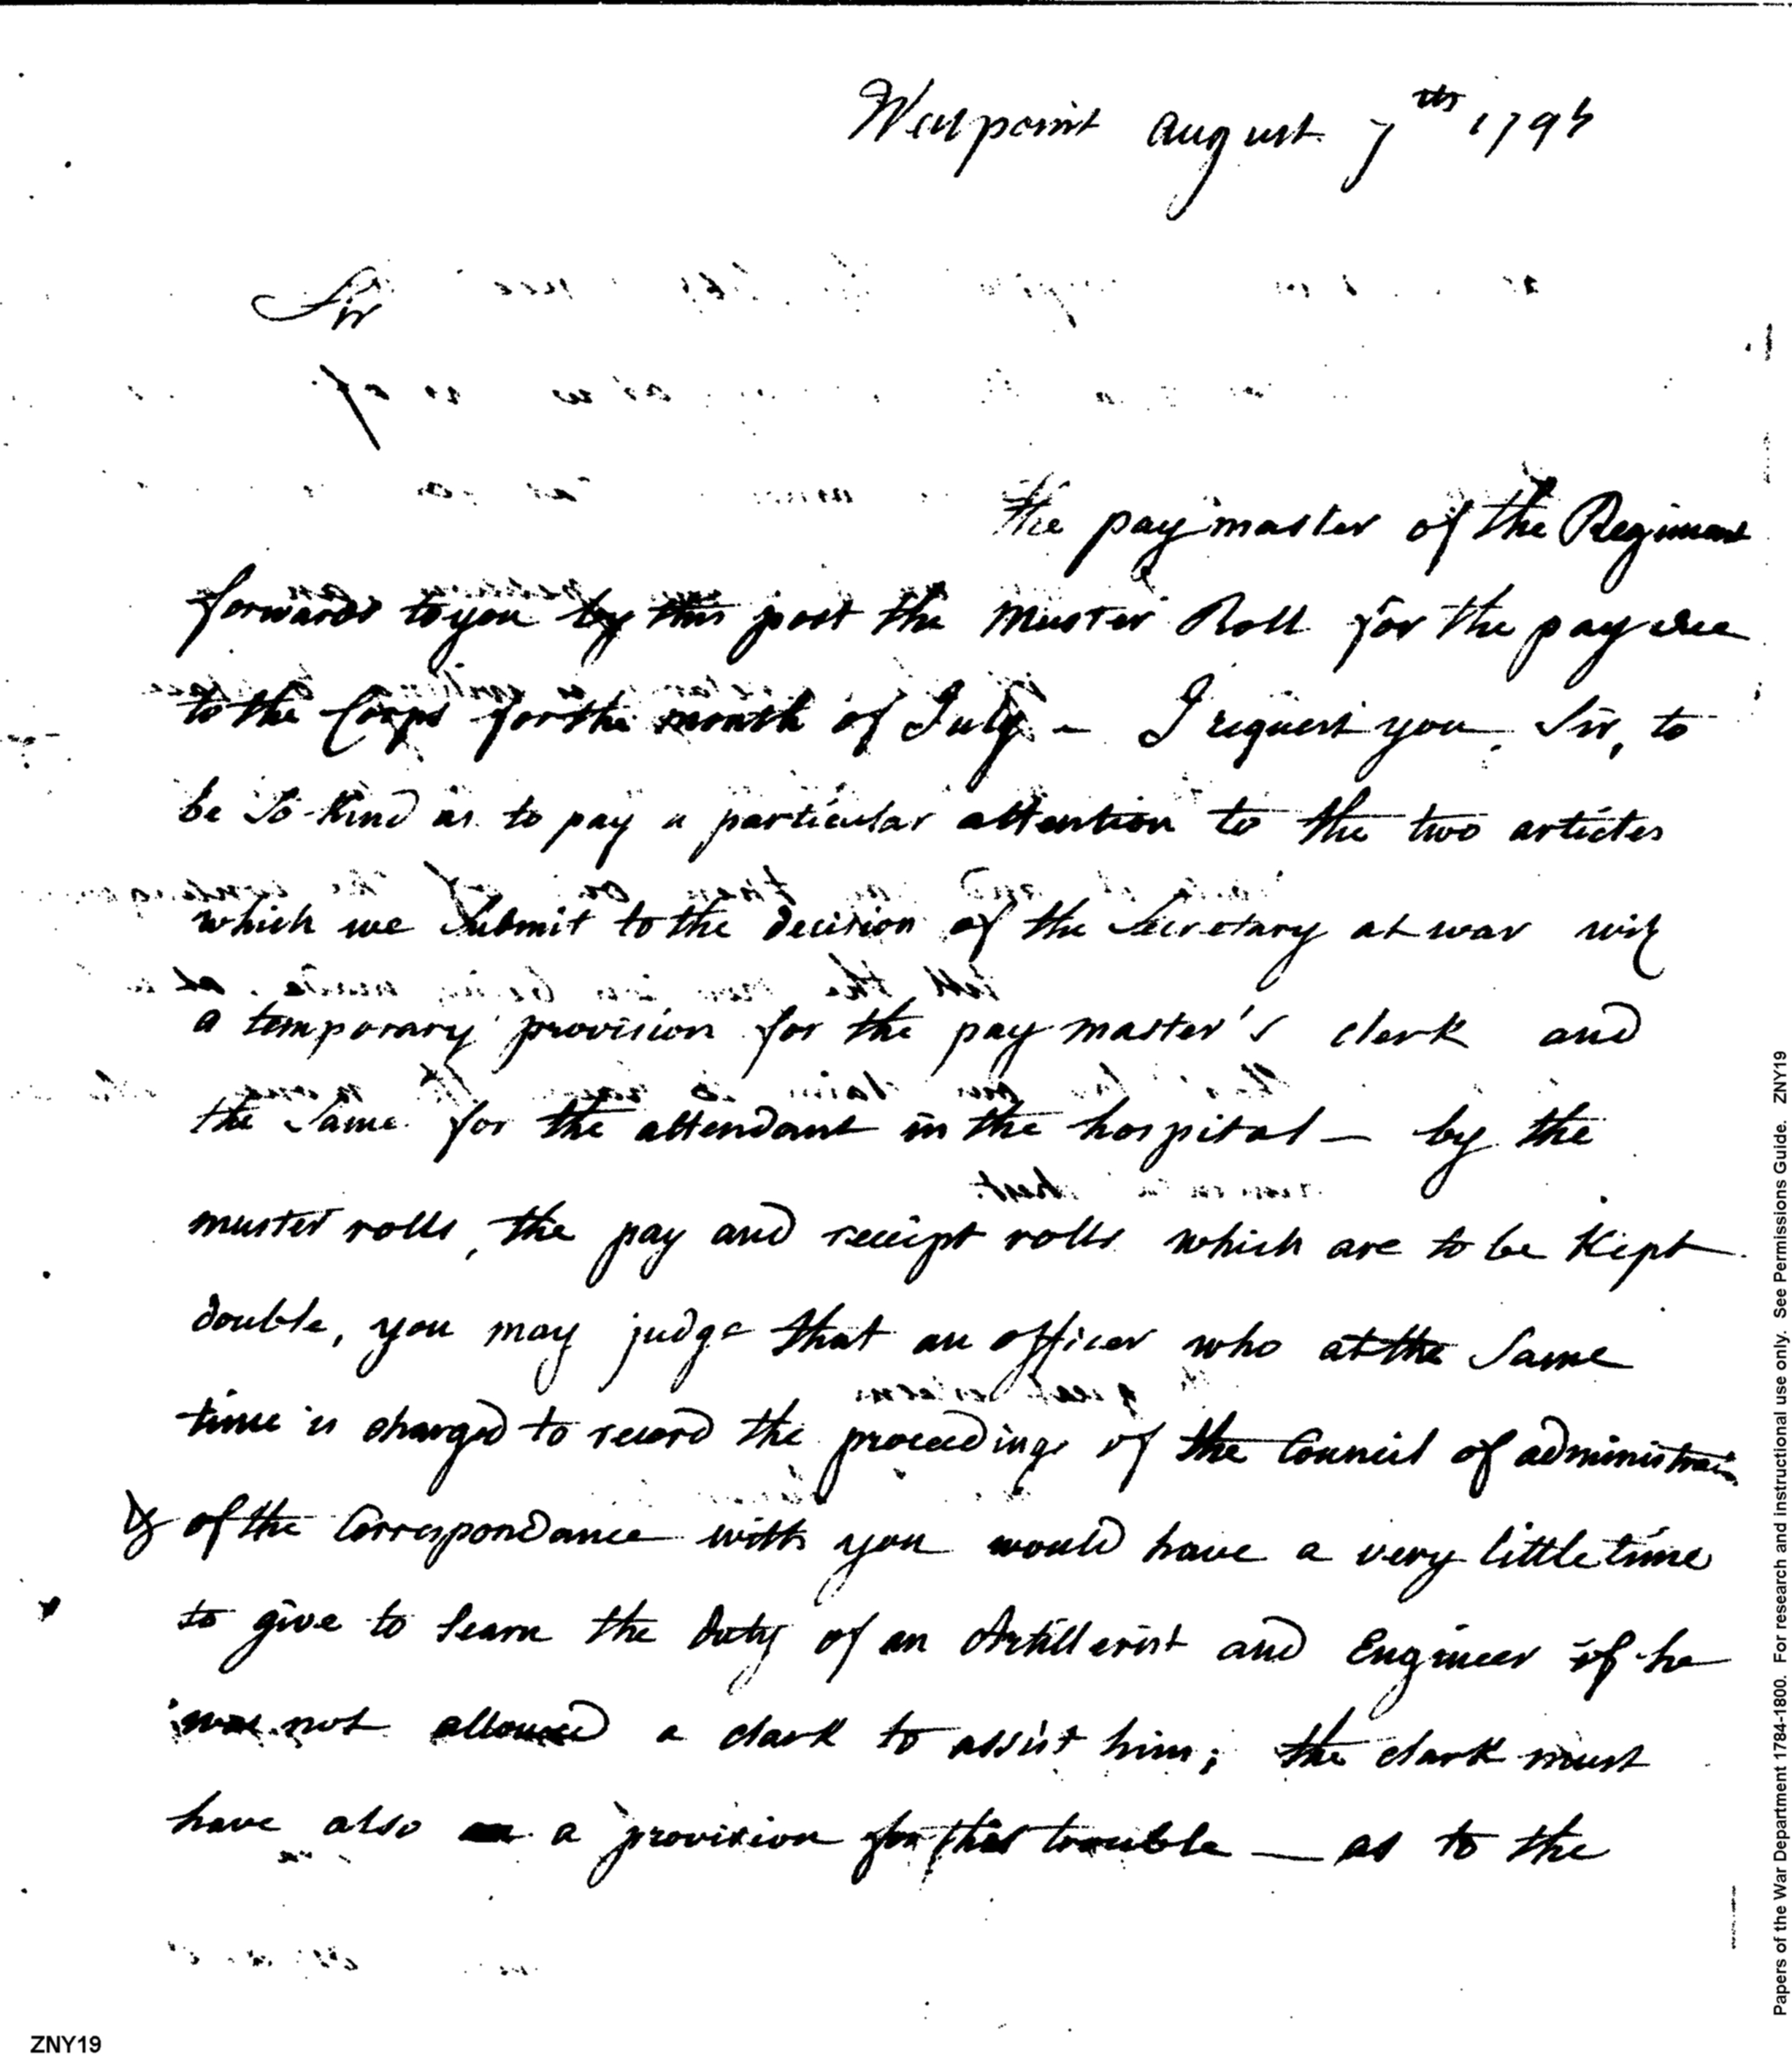 Westpoint august 7th 1795
Sir
the paymaster of the Regiment
forwards to you by this post the Muster Roll for the pay due
to the Corps for the month of July - I request you, Sir, to
be so kind as to pay a particular attention to the two articles
which we submit to the decision of the Secretary at war viz
a temporary provision for the pay master's clerk and
the same for the attendant in the hospital — by the
muster rolls, the pay and receipt rolls which are to be Kept
double, you may judge that an officer who at the same
time is charged to record the proceedings of the Council of administration
& of the Correspondance with you would have a very little time
to give to learn the duty of an Artillerist and Engineer if he
was not allowed a clark to assist him; the clark must
have also a provision for his trouble — as to the
ZNY19
Papers of the War Department 1784-1800. For research and instructional use only. See Permissions Guide. ZNY19